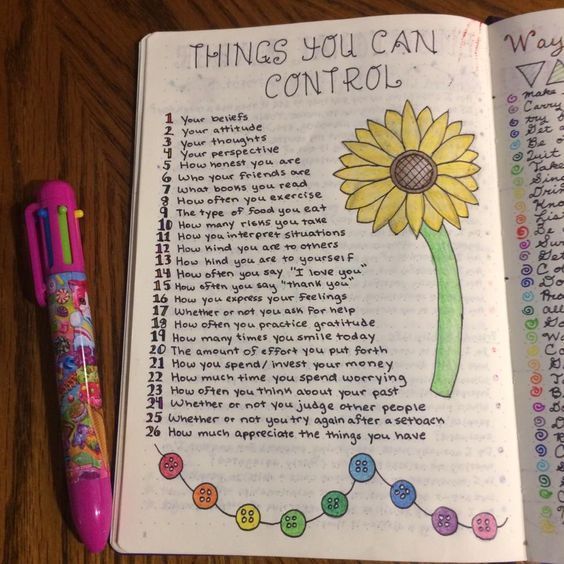 THINGS YOU CAN
CONTROL
1 Your beliefs
2 Your attitude
3 Your thoughts
4 Your perspective
5 How honest you are
6 Who your friends are
7 What books you read
8 How often you exercise
9 The type of food you eat
10 How many risks you take
11 How you interpret situations
12 How kind you are to others
13 How kind you are to yourself
14 How often you say "I love you"
15 How often you say "thank you"
16 How you express your feelings
17 Whether or not you ask for help
18 How often you practice gratitude
19 How many times you smile today
20 The amount of effort you put forth
21 How you spend/invest your money
22 How much time you spend worrying
23 How often you think about your past
24 Whether or not you judge other people
25 Whether or not you try again after a setback
26 How much appreciate the things you have
Way
make
Carry
try
Get a
Be
Quit
Take
Sing
Kno
Lis
Be
Get
Do
all